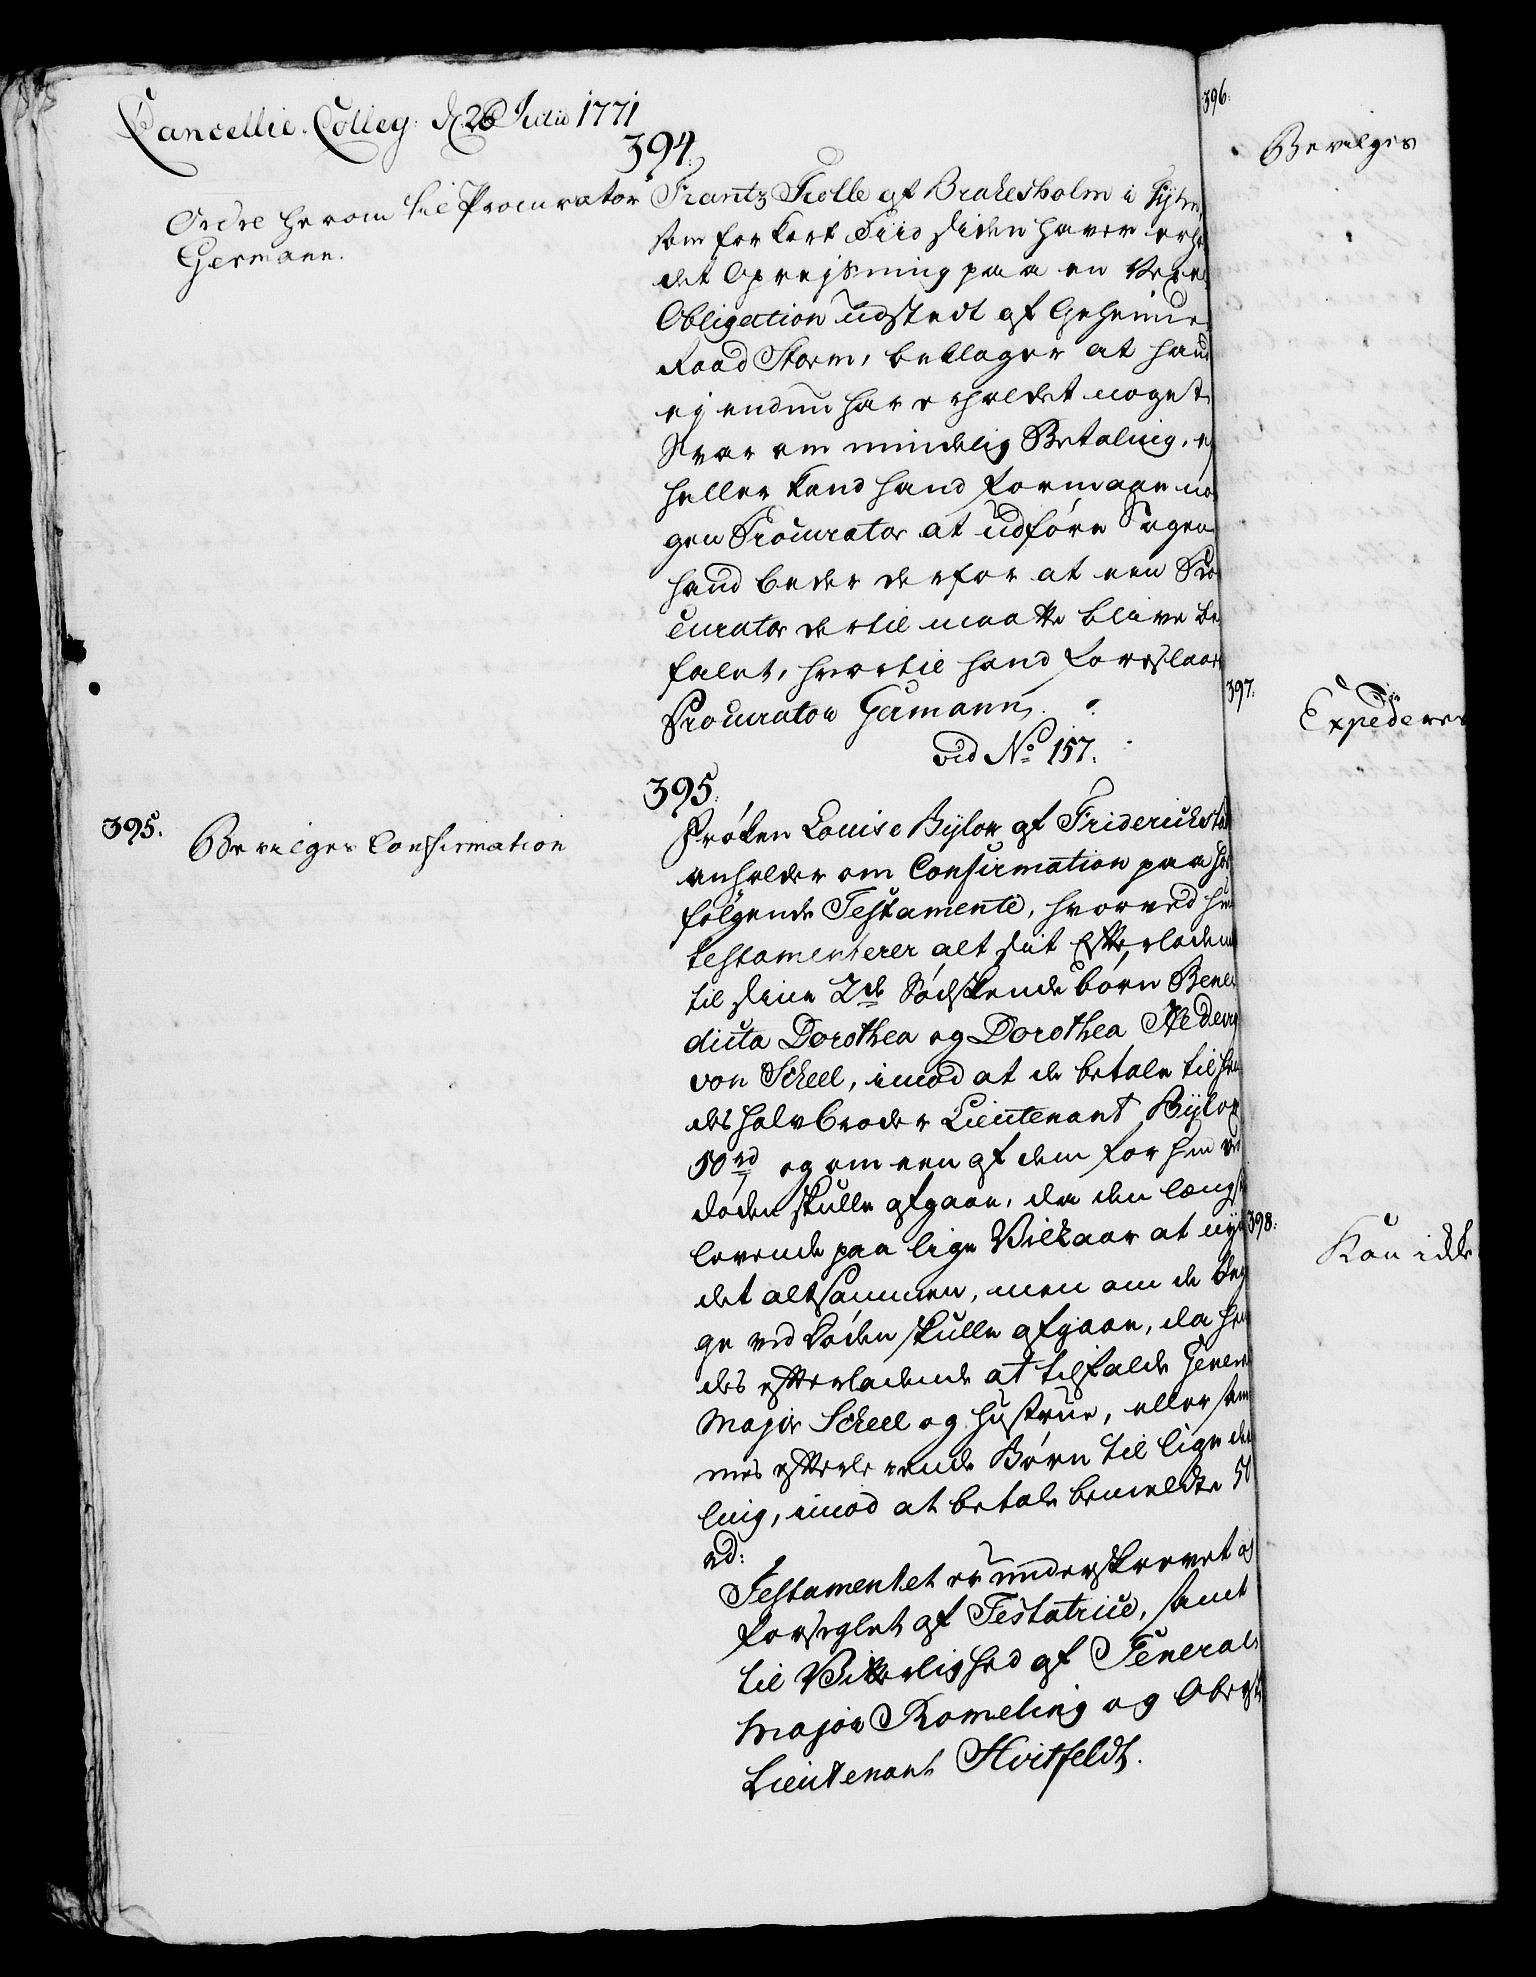 Cancellie. Colleg: d. 26 Julii 1771
394.
Ordre herom til Procurator
Germann.
Frantz Trolle af Brahesholm i Fyhn,
som for kort Tiid siden haver erhol
det Opreysning paa en
Obligation udstedt af Geheime
Raad Storm, beklager at hand
ej endnu har erholdet noget
Svar om mindelig Betaling, ej
heller kand hand formaae no
gen Procurator at udføre Sagen
hand beder derfor at een Pro
curator dertil maatte blive be
falet, hvortil hand foreslaar
Procurator Germann.
vid No. 157.
395.
395.
Bevilges Confirmation
Frøken Louise Bylow af Friderichstad
anholder om Confirmation paa hos
følgende Testamente, hvorved hun
testamenterer alt sit Efterladende
til sine 2de Sødskende børn Bene
dicta Dorothea og Dorothea Hedevig
von Scheel, imod at de betale til hen
des halvbroder Lieutenant Bylow
50 rd og om een af dem for hen ved
døden skulle afgaae, da den længst
levende paa lige Vilkaar at nyde
det altsammen, men om de beg
ge ved døden skulle afgaae, da hen
des efterladende at tilfalde General
Major Scheel og Hustrue, eller sam
mes efterlevende Børn til lige dee
ling, imod at betale bemeldte 50
rd:
Testamentet er underskrevet og
forseglet af Testatrice, samt
til Vitterlighed af General
Major Romeling og Obrist
Lieutenant Hvitfeldt.
396.
Bevilges
397.
Expederes
398.
Kan ikke